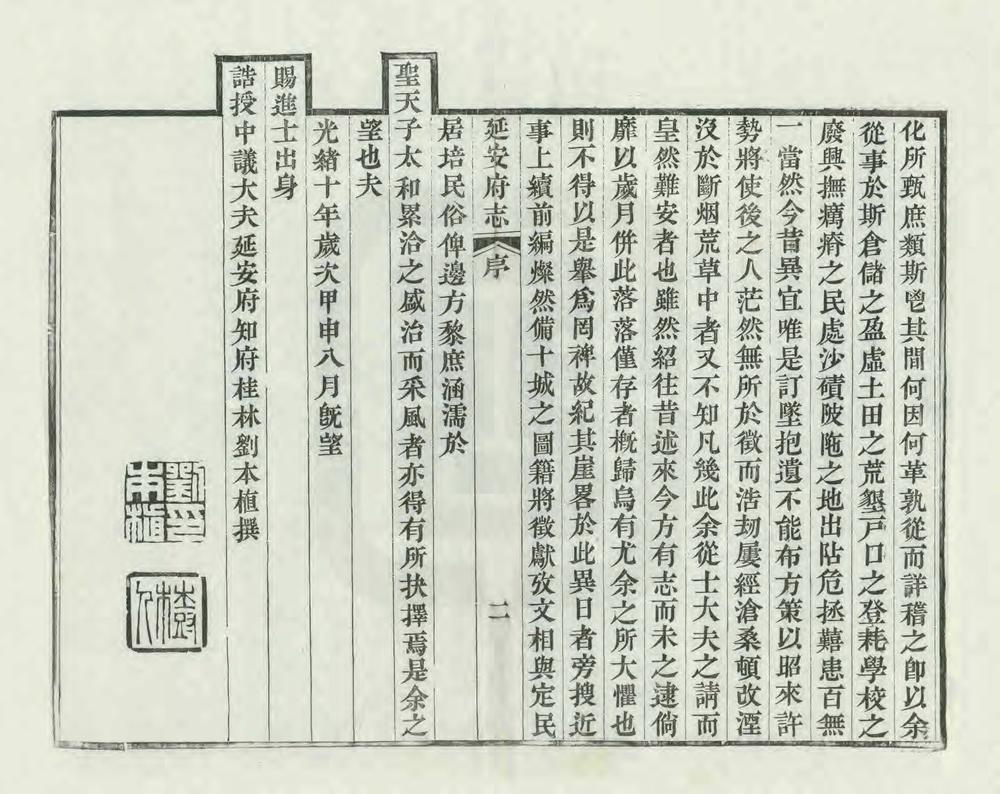 化所甄庶類斯鬯其間何因何革孰從而詳稽之卽以余
從事於斯倉儲之盈虛土田之荒墾戸口之登耗學校之
廢興撫癘瘠之民處沙磧陂陁之地出阽危拯囏患百無
一當然今昔異宜唯是訂墜抱遺不能布方策以昭來許
勢將使後之人茫然無所於徵而浩刼屢經滄桑頓改湮
沒於斷烟荒草中者又不知凡幾此余從士大夫之請而
皇然難安者也雖然紹往昔述來今方有志而未之逮倘
靡以歲月併此落落僅存者槪歸烏有尤余之所大懼也
則不得以是舉爲罔裨故紀其崖畧於此異日者旁搜近
事上續前編燦然備十城之圖籍將徵獻攷文相與定民
延安府志 序 二
居培民俗俾邊方黎庶涵濡於
聖天子太和累洽之盛治而采風者亦得有所抉擇焉是余之
望也夫
光緒十年歲次甲申八月旣望
賜進士出身
誥授中議大夫延安府知府桂林劉本植撰
劉本植印